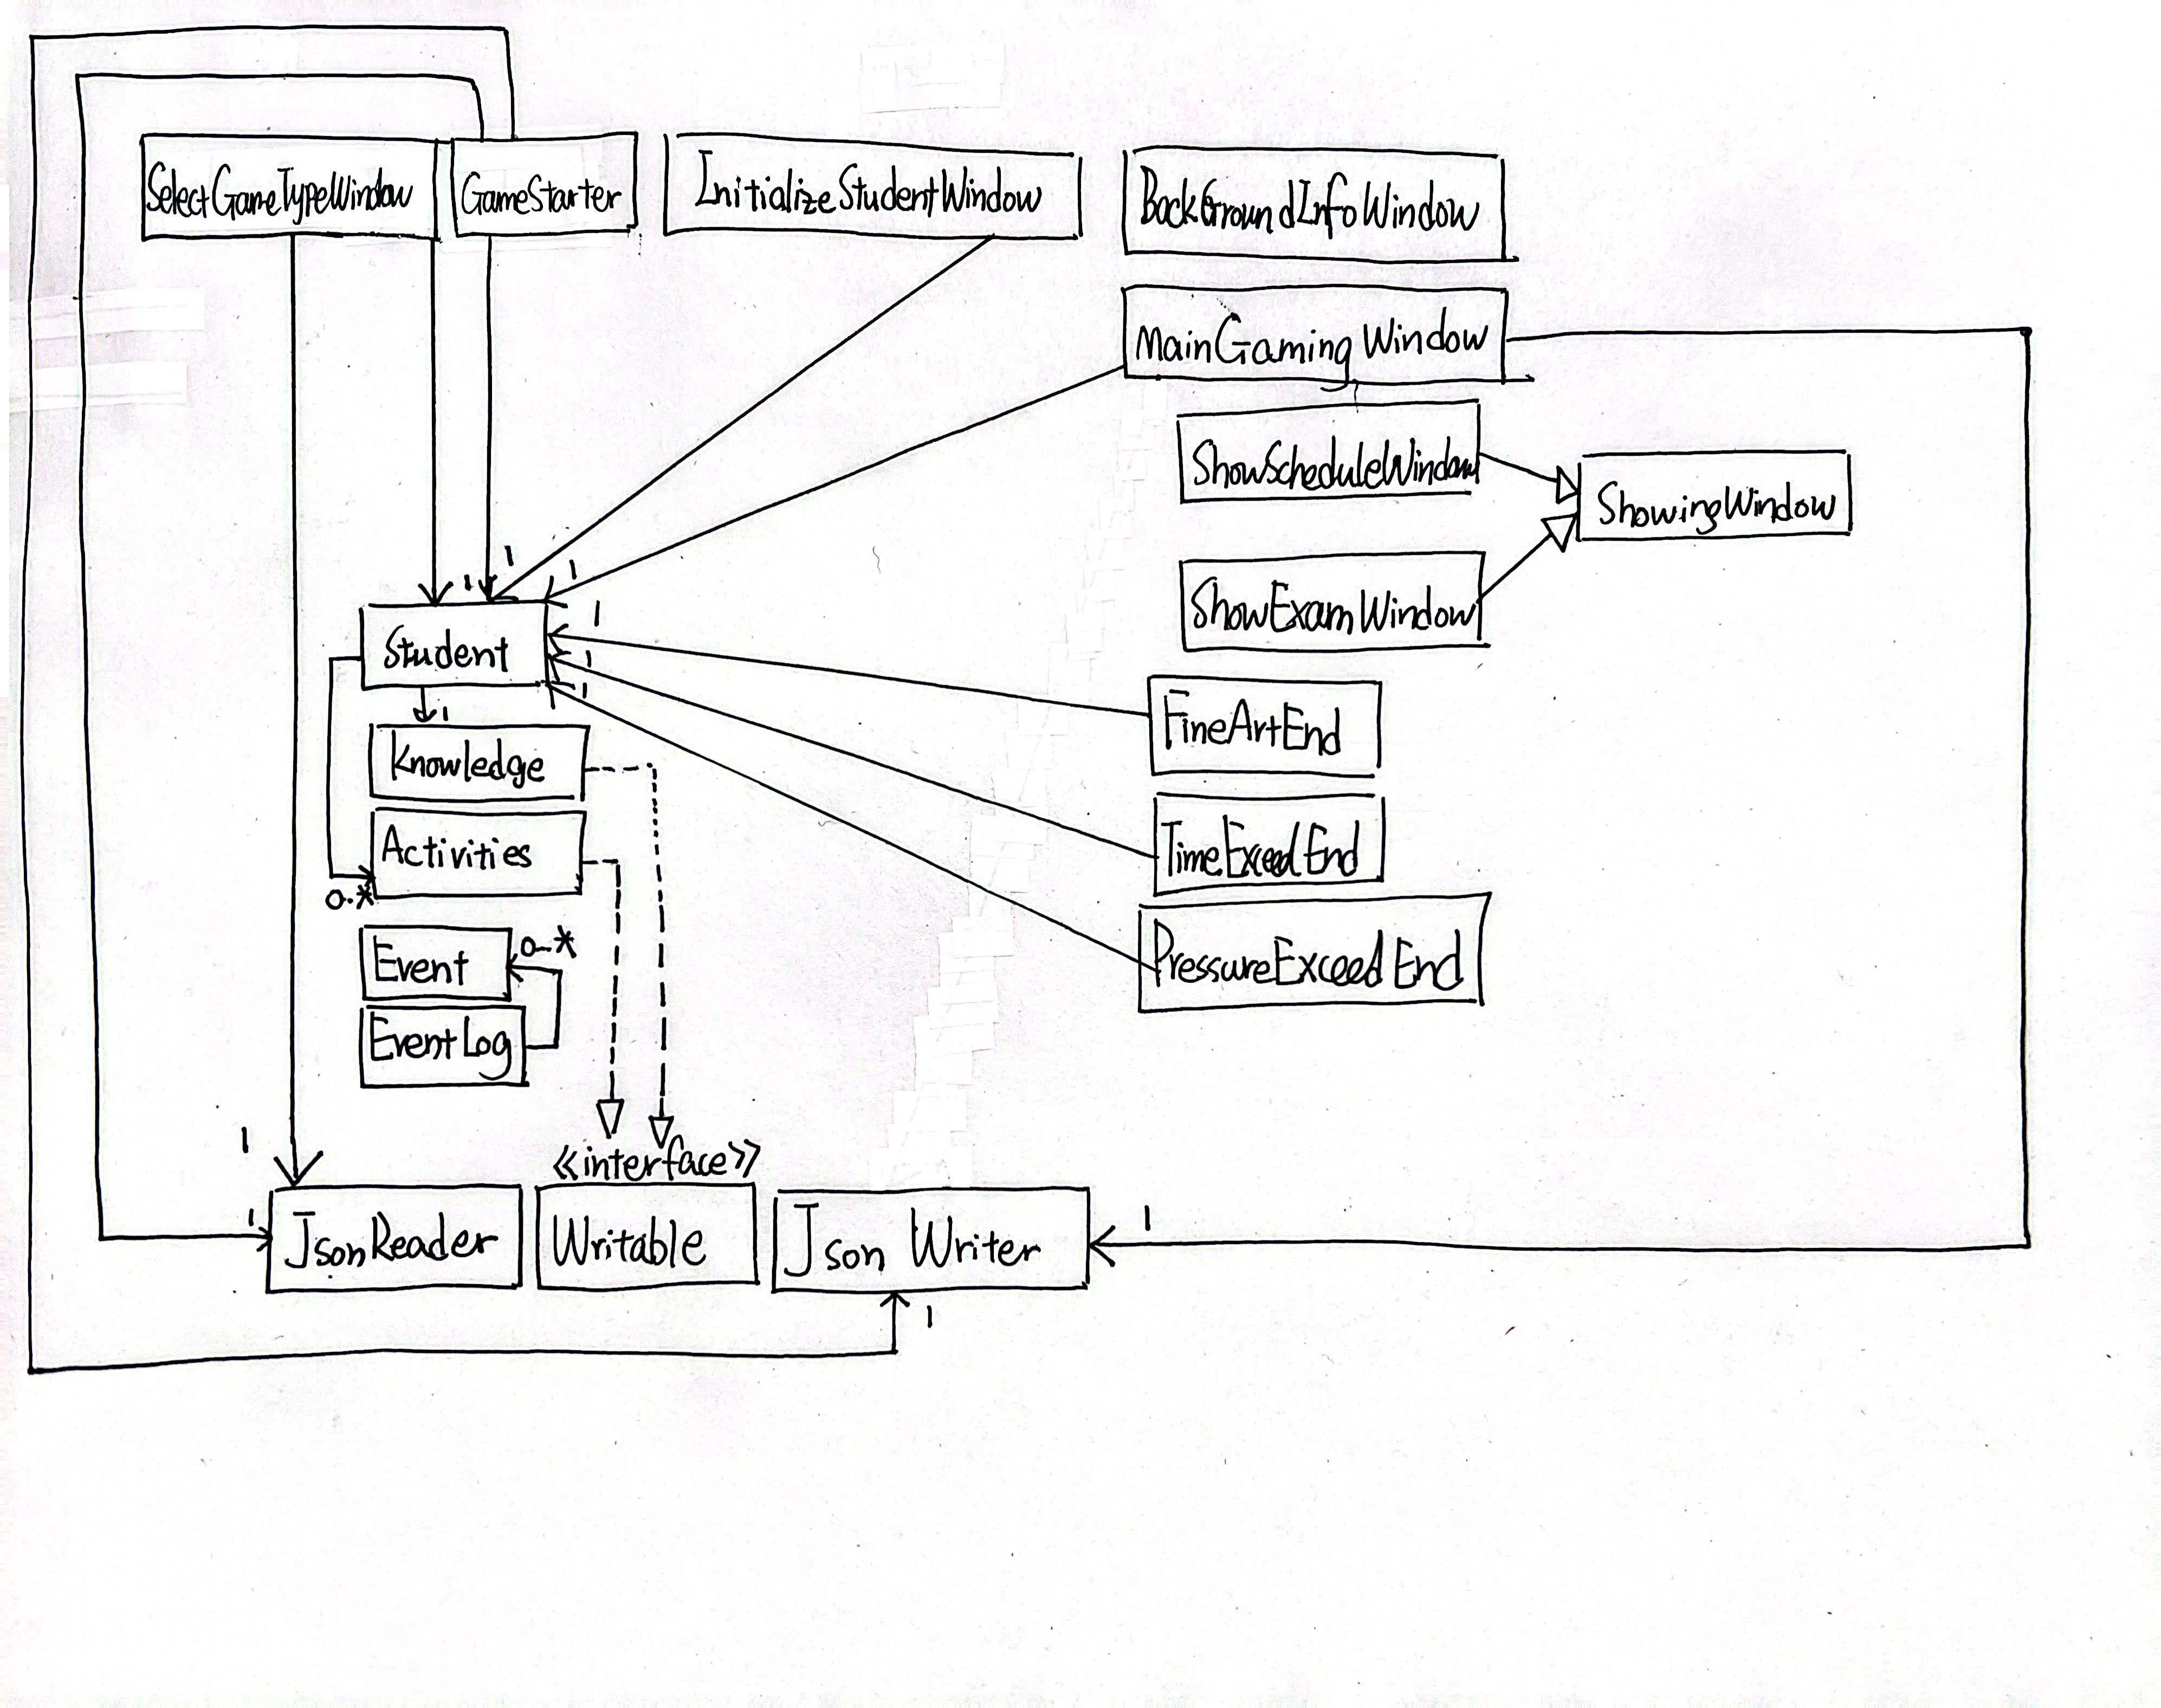 SelectGameTypeWindow
GameStarter
InitializeStudentWindow
BackGroundInfoWindow
MainGaming Window
ShowScheduleWindow
ShowingWindow
ShowExam Window
1
1
1
1
1
1
Student
1
Knowledge
Activities
0..*
Event
0..*
EventLog
FineArtEnd
TimeExceedEnd
PressureExceed End
1
<<interface>>
1
JsonReader
Writable
Json Writer
1
1